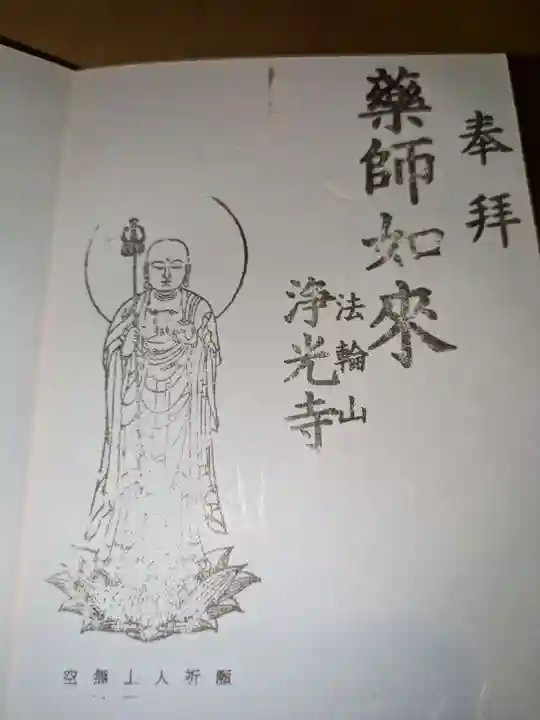 奉拜
藥師如來
法輪山
浄光寺
願祈人上無空